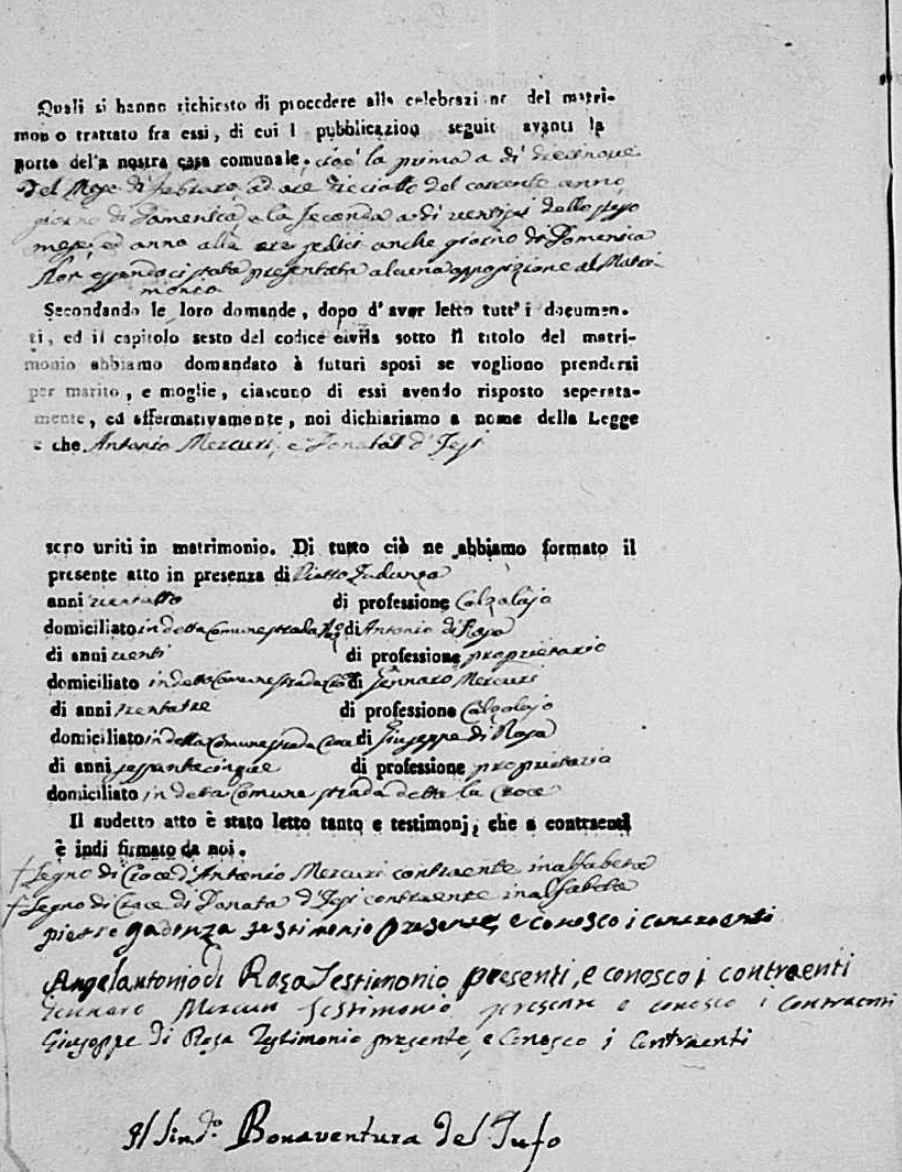 Quali si hanno richiesto di procedere alla celebrazione del matri-
monio trattato fra essi, di cui l pubblicazion seguit avanti la
porta del'a nostra casa comunale. cioè la prima a dì diecinque
del Mese di Febraro, ad ore dieciotto del corrente anno
giorno di Domenica, e la seconda a dì ventisei dello stesso
mese, ed anno alla ore sedici anche giorno di Domenica
Non essendoci stata presentata alcuna opposizione al Matri-
monio
Secondando le loro domande, dopo d'aver letto tutt' i documen-
ti, ed il capitolo sesto del codice civile sotto il titolo del matri-
monio abbiamo domandato à futuri sposi se vogliono prendersi
per marito, e moglie, ciascuno di essi avendo risposto seperata-
mente, ed affermativamente, noi dichiariamo a nome della Legge
e che Antonio Mercuri, e Donata d'Jesi
sono uniti in matrimonio. Di tutto ciò ne abbiamo formato il
presente atto in presenza di Pietro
anni ventotto di professione Calzolajo
domiciliato in detta Comune strada di Antonio di Rosa
di anni venti di professione proprietario
domiciliato in detta Comune strada Croce di Gennaro Mercuri
di anni trentatre di professione Calzolajo
domiciliato in detta Comune strada Croce di Giuseppe di Rosa
di anni sessantacinque di professione proprietario
domiciliato in detta Comune strada detta la Croce
Il sudetto atto è stato letto tanto e testimonj, che a contraenti
è indi firmato da noi.
† Segno di Croce d'Antonio Mercuri contraente inalfabeta
† Segno di Croce di Donata d'Jesi contraente inalfabeta
pietro gadenza testimonio presente, e conosco i contraenti
Angelantonio di Rosa Testimonio presenti, e conosco i contraenti
Gennaro Mercuri Testimonio presente e conosco i Contraenti
Giuseppe di Rosa Testimonio presente, e Conosco i Contraenti
Il Sind.o Bonaventura del Tufo